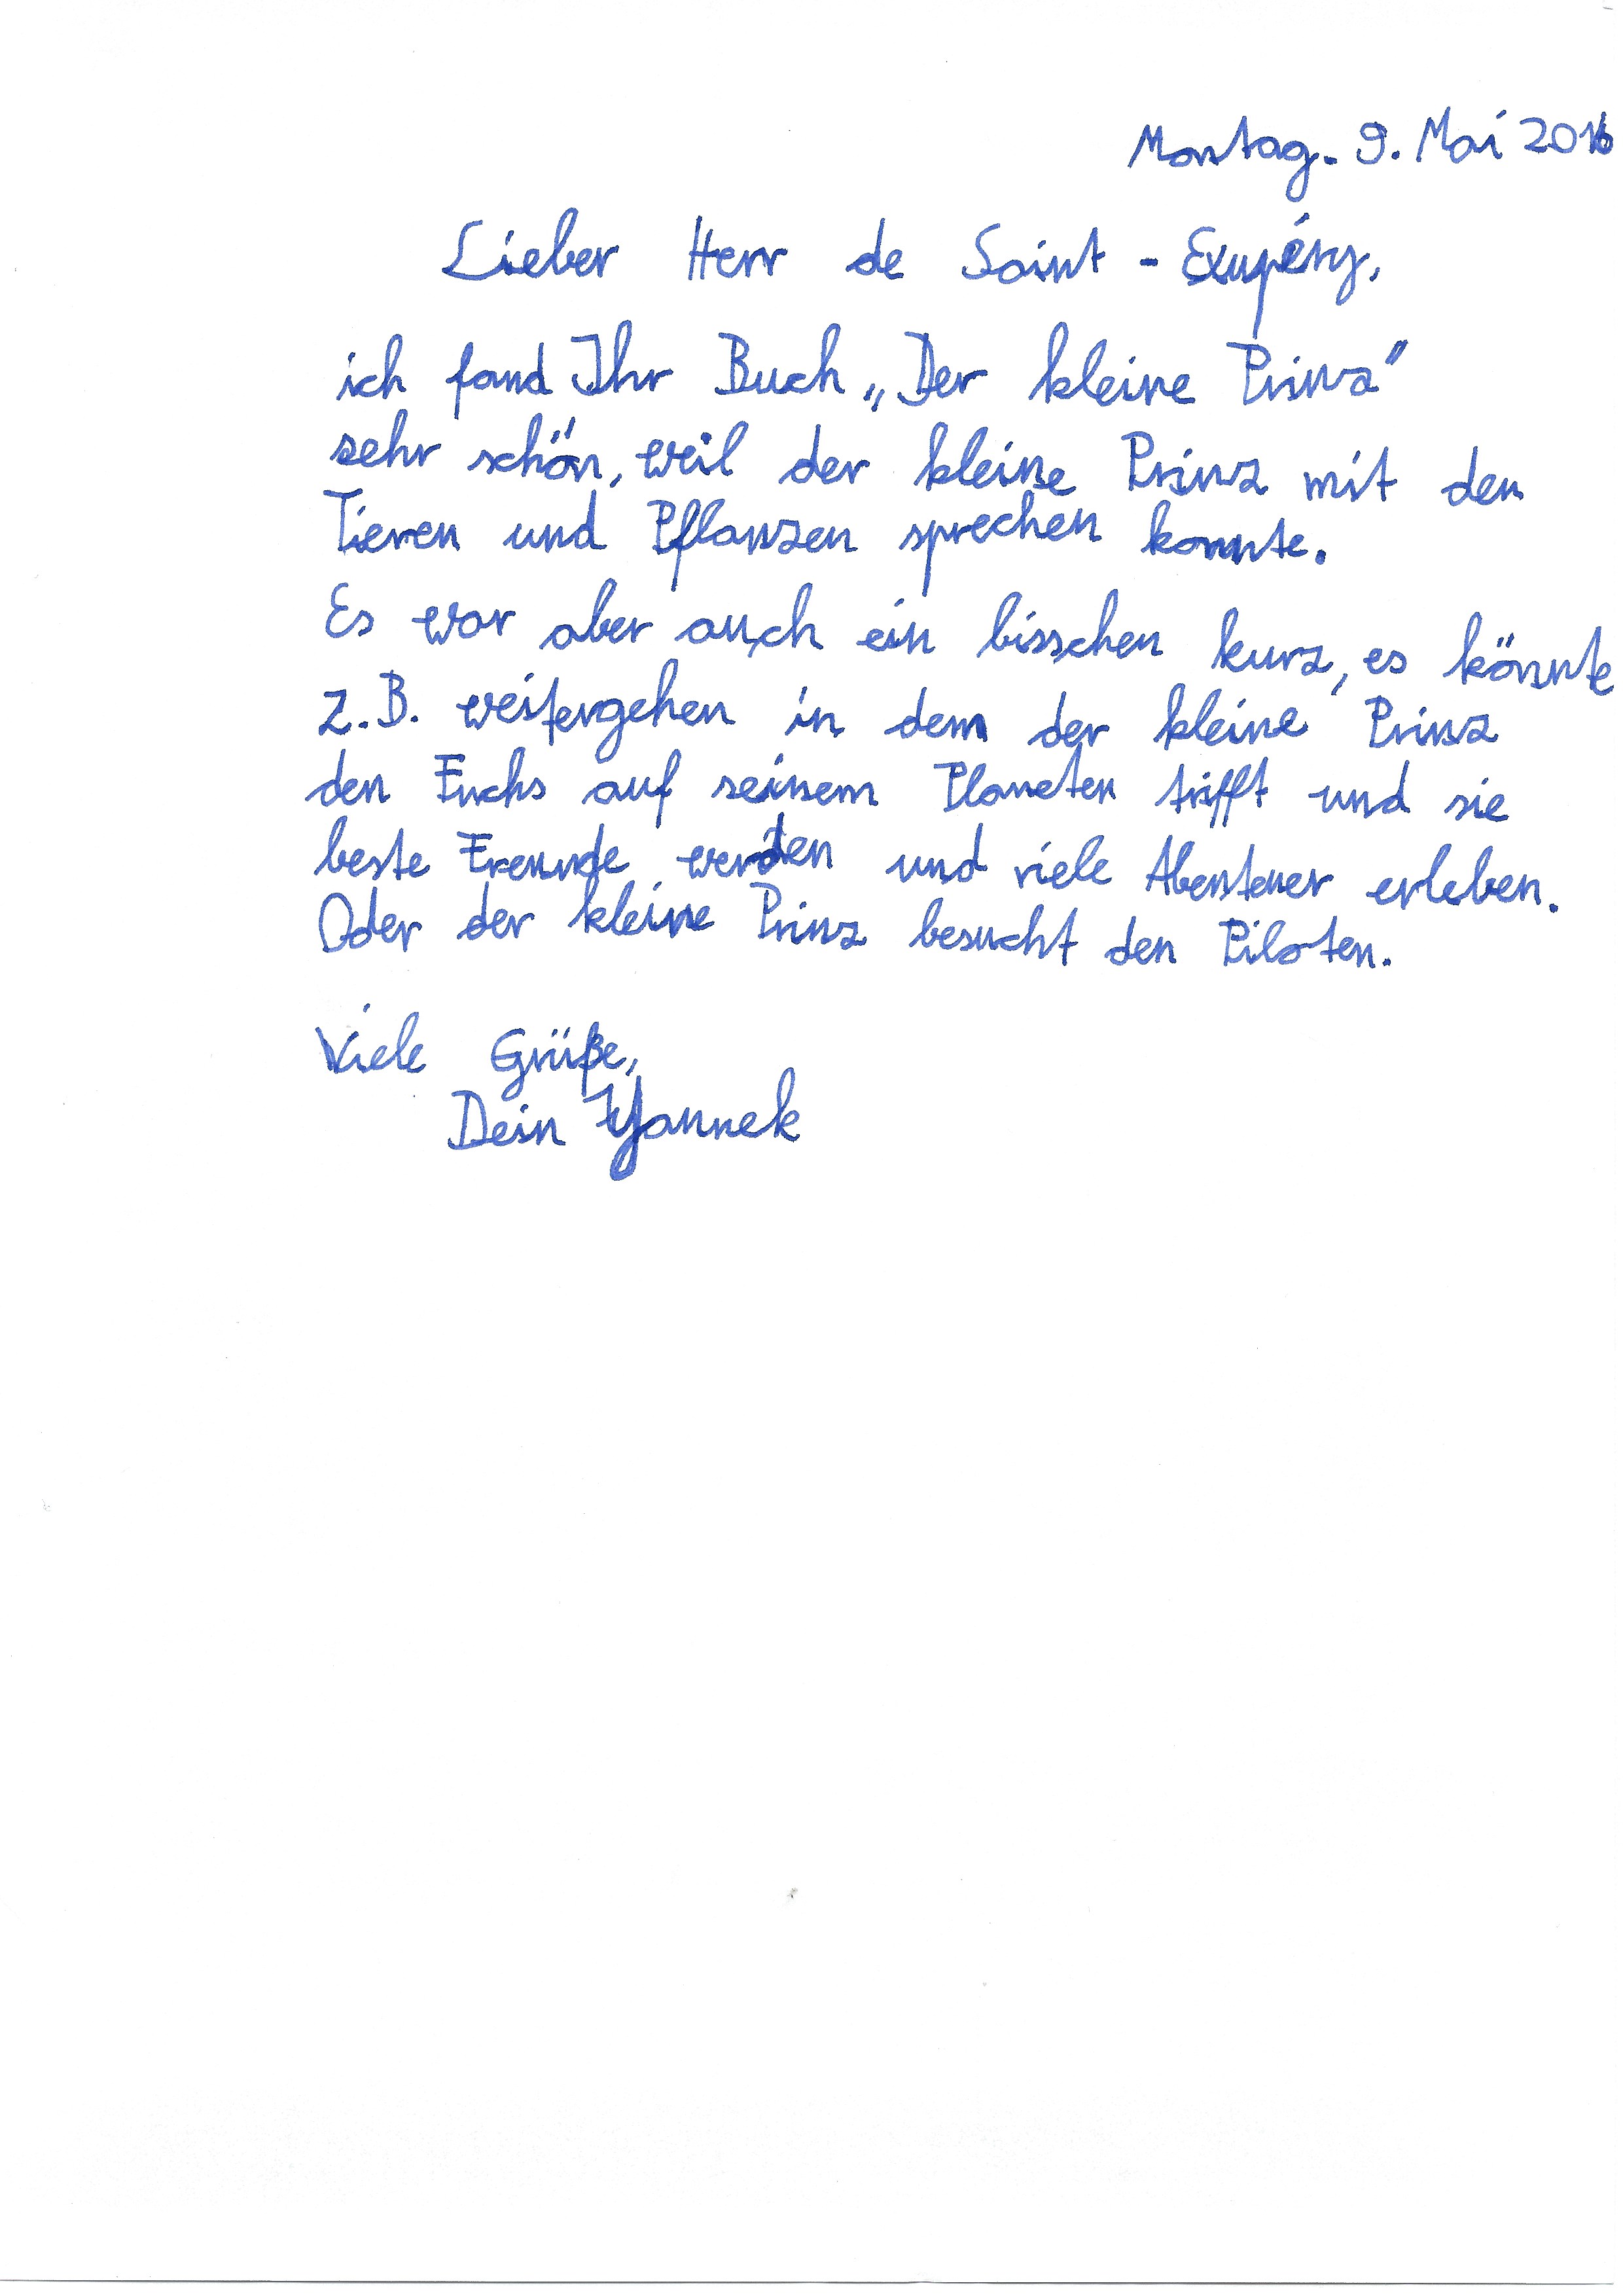 Montag. 9. Mai 2016
Lieber Herr de Saint - Exupéry,
ich fand Ihr Buch „Der kleine Prinz“
sehr schön, weil der kleine Prinz mit den
Tieren und Pflanzen sprechen konnte.
Es war aber auch ein bisschen kurz, es könnte
z.B. weitergehen in dem der kleine Prinz
den Fuchs auf seinem Planeten trifft und sie
beste Freunde werden und viele Abenteuer erleben.
Oder der kleine Prinz besucht den Piloten.
Viele Grüße,
Dein Yannek